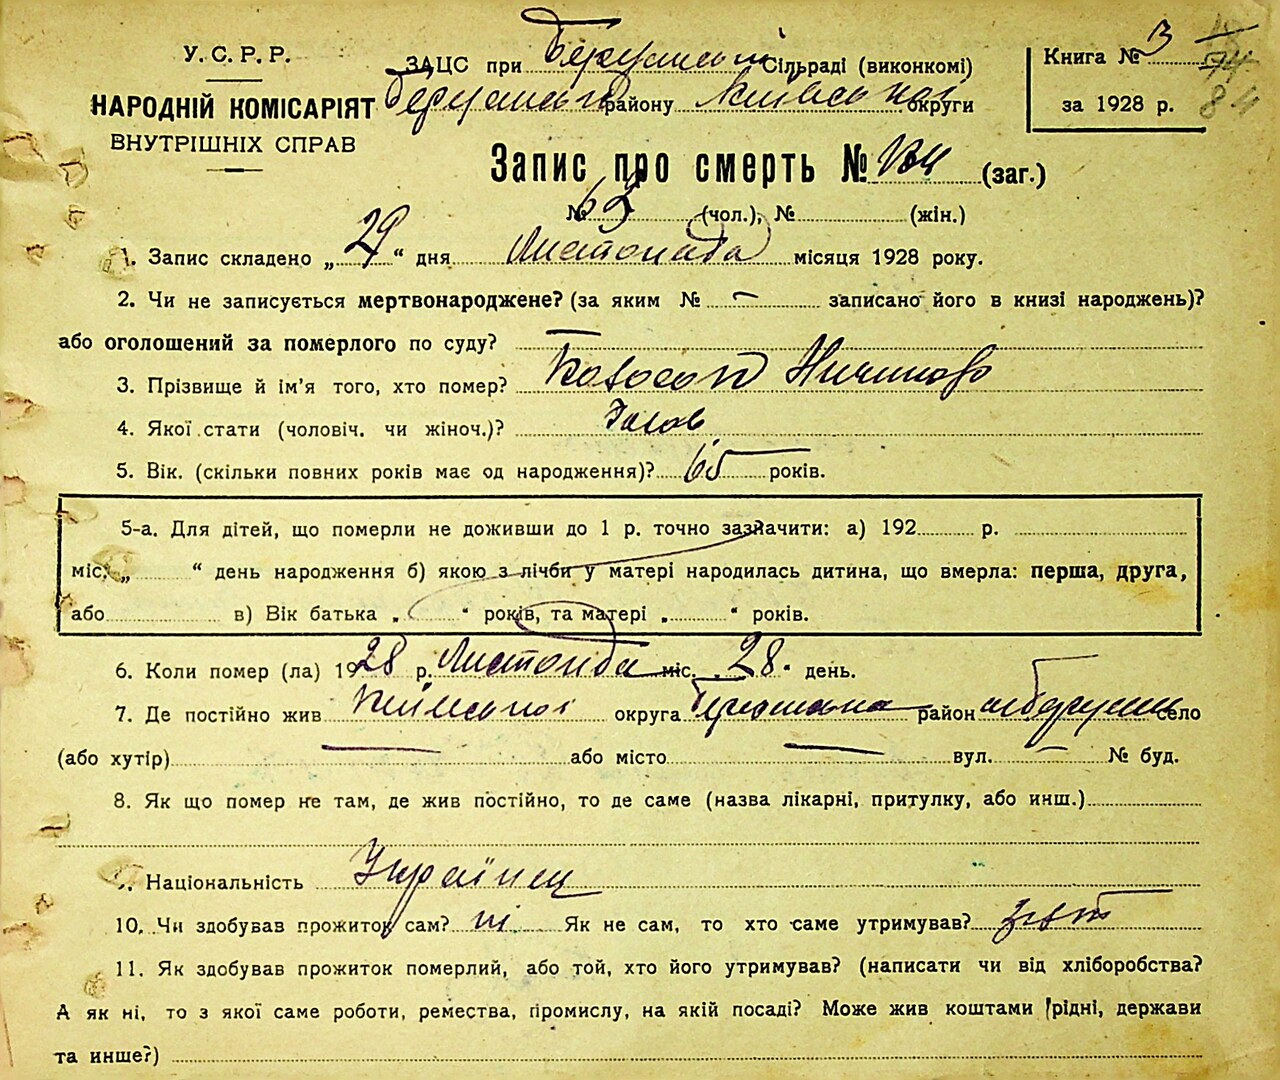 У. С. Р. Р.
НАРОДНІЙ КОМІСАРІЯТ
ВНУТРІШНІХ СПРАВ
ЗАЦС при Сільраді (виконкомі)
району Київської округи
Книга № 3
за 1928 р.
Запис про смерть № (заг.)
№ 63 (чол.), № (жін.)
1. Запис складено „ 29 “ дня Листопада місяця 1928 року.
2. Чи не записується мертвонароджене? (за яким № – записано його в книзі народжень)?
або оголошений за померлого по суду? –
3. Прізвище й ім'я того, хто помер?
4. Якої статі (чоловіч. чи жіноч.)?
5. Вік. (скільки повних років має од народження)? 65 років.
5-а. Для дітей, що померли не доживши до 1 р. точно зазначити: а) 192 р.
міс. „ “ день народження б) якою з лічби у матері народилась дитина, що вмерла: перша, друга,
або в) Вік батька „ “ років, та матері „ “ років.
6. Коли помер (ла) 1928 р. Листопада міс. 28. день.
7. Де постійно жив Київської округа район село
(або хутір) — або місто — вул. — № буд.
8. Як що помер не там, де жив постійно, то де саме (назва лікарні, притулку, або инш.)
9. Національність Українец
10. Чи здобував прожиток сам? ні Як не сам, то хто саме утримував? зять
11. Як здобував прожиток померлий, або той, хто його утримував? (написати чи від хліборобства?
А як ні, то з якої саме роботи, ремества, промислу, на якій посаді? Може жив коштами рідні, держави
та инше?)